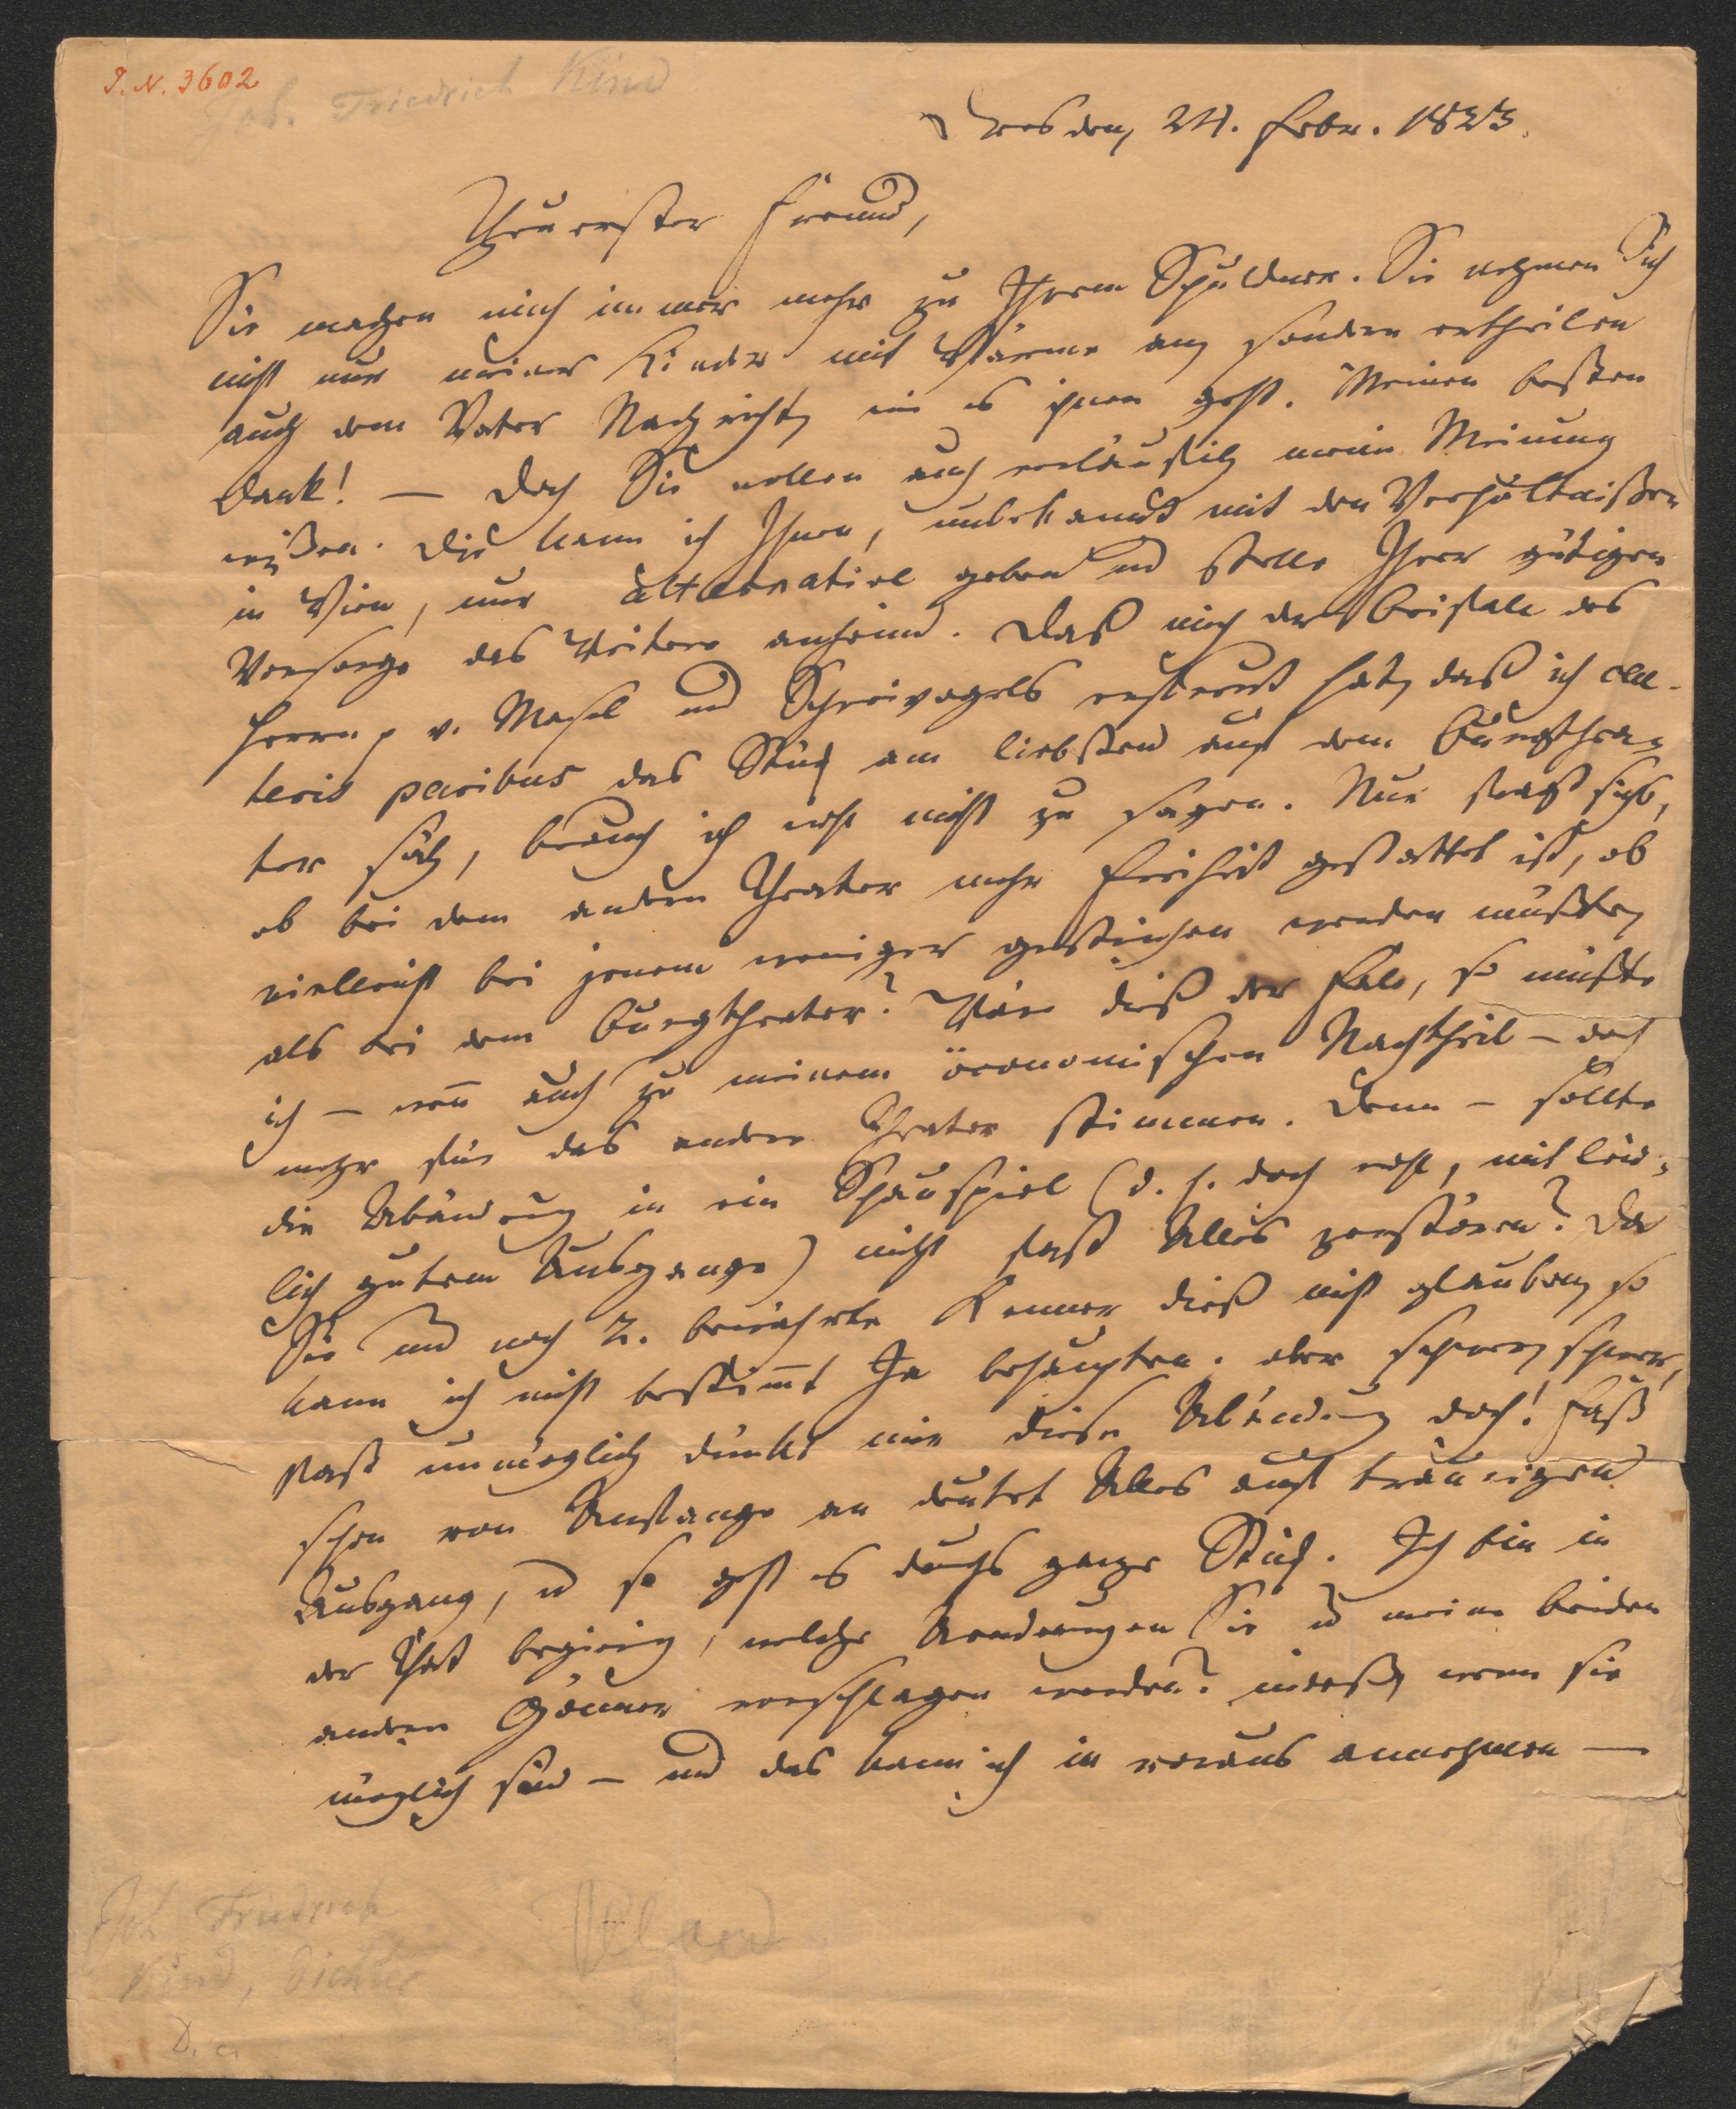 I. N. 3602
Joh. Friedrich Kind
Dresden, 24. Febr. 1823.
Theuerster Freund,
Sie machen mich immer mehr zu Ihrem Schuldner. Sie nehmen Sich
nicht nur meiner Kinder mit Wärme an, sondern ertheilen
auch dem Vater Nachricht, wie es ihnen geht. Meinen besten
Dank! — Doch Sie wollen auch vorläufig meine Meinung
wißen. Die kann ich Ihnen, unbekannt mit den Verhältnißen
in Wien, nur alternativ geben und stelle Ihrer gütigen
Vorsorge das Weitere anheim. Daß mich der Beifall des
Herrn p v. Mosel und Schreivogels erfreut hat, daß ich cae-
teris paribus das Stück am liebsten auf dem Burgthea-
ter säh, brauch ich wohl nicht zu sagen. Nur fragt sichs,
ob bei dem andern Theater mehr Freiheit gestattet ist, ob
vielleicht bei jenem weniger gestrichen werden müßte,
als bei dem Burgtheater? Wäre dieß der Fall, so müßte
ich — wenn auch zu meinem öconomischen Nachtheil — doch
mehr für das andere Theater stimmen. Denn — sollte
die Abändrung in ein Schauspiel (d. h. doch wohl, mit leid-
lich gutem Ausgange) nicht fast Alles zerstören? Da
Sie und noch 2. bewährte Kenner dieß nicht glauben, so
kann ich nicht bestimmt Ja behaupten. aber schwer, schwer,
fast unmöglich dünkt mir diese Abändrung doch! Fast
schon von Anfange an deutet Alles auf traurigen
Ausgang, u so geht es durchs ganze Stück. Ich bin in
der That begierig, welche Aenderungen Sie u meine beiden
andern Gönner vorschlagen werden? indeß, wenn sie
möglich sind — und das kann ich in voraus annehmen —
Joh Friedrich
Kind, Dichter